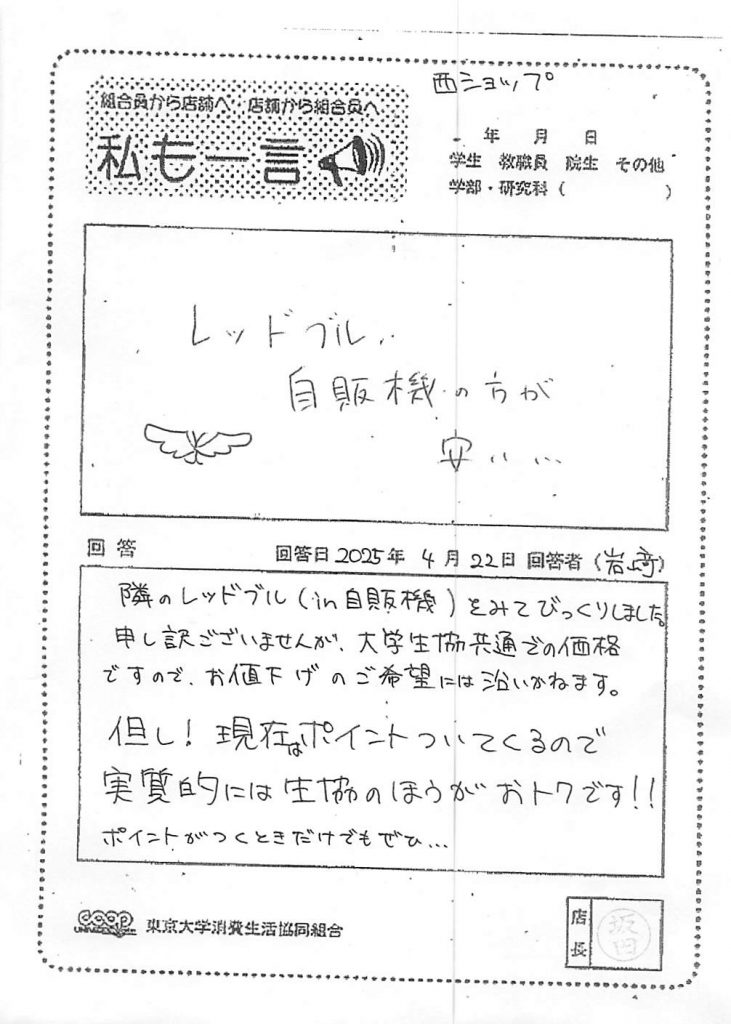 西ショップ
組合員から店舗へ 店舗から組合員へ
私も一言
年 月 日
学生 教職員 院生 その他
学部・研究科( )
レッドブル、、
自販機の方が
安い、、、
回答 回答日2025年 4月22日 回答者(岩﨑)
隣のレッドブル(in自販機)をみてびっくりしました。
申し訳ございませんが、大学生協共通での価格
ですので、お値下げのご希望には沿いかねます。
但し!現在はポイントついてくるので
実質的には生協のほうがおトクです!!
ポイントがつくときだけでもぜひ...
coop 東京大学消費生活協同組合
店長 坂田